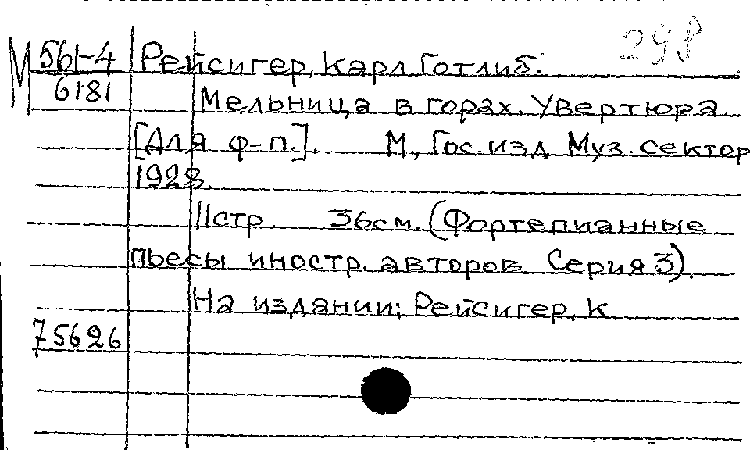 298
М 561-4 Рейсигер, Карл Готлиб.
6181 Мельница в горах. Увертюра
[Для ф-п.]. М., Гос. изд. Муз. сектор
1928.
11стр. 36см. (Фортепианные
пьесы иностр. авторов. Серия 3).
На издании: Рейсигер, К.
75626